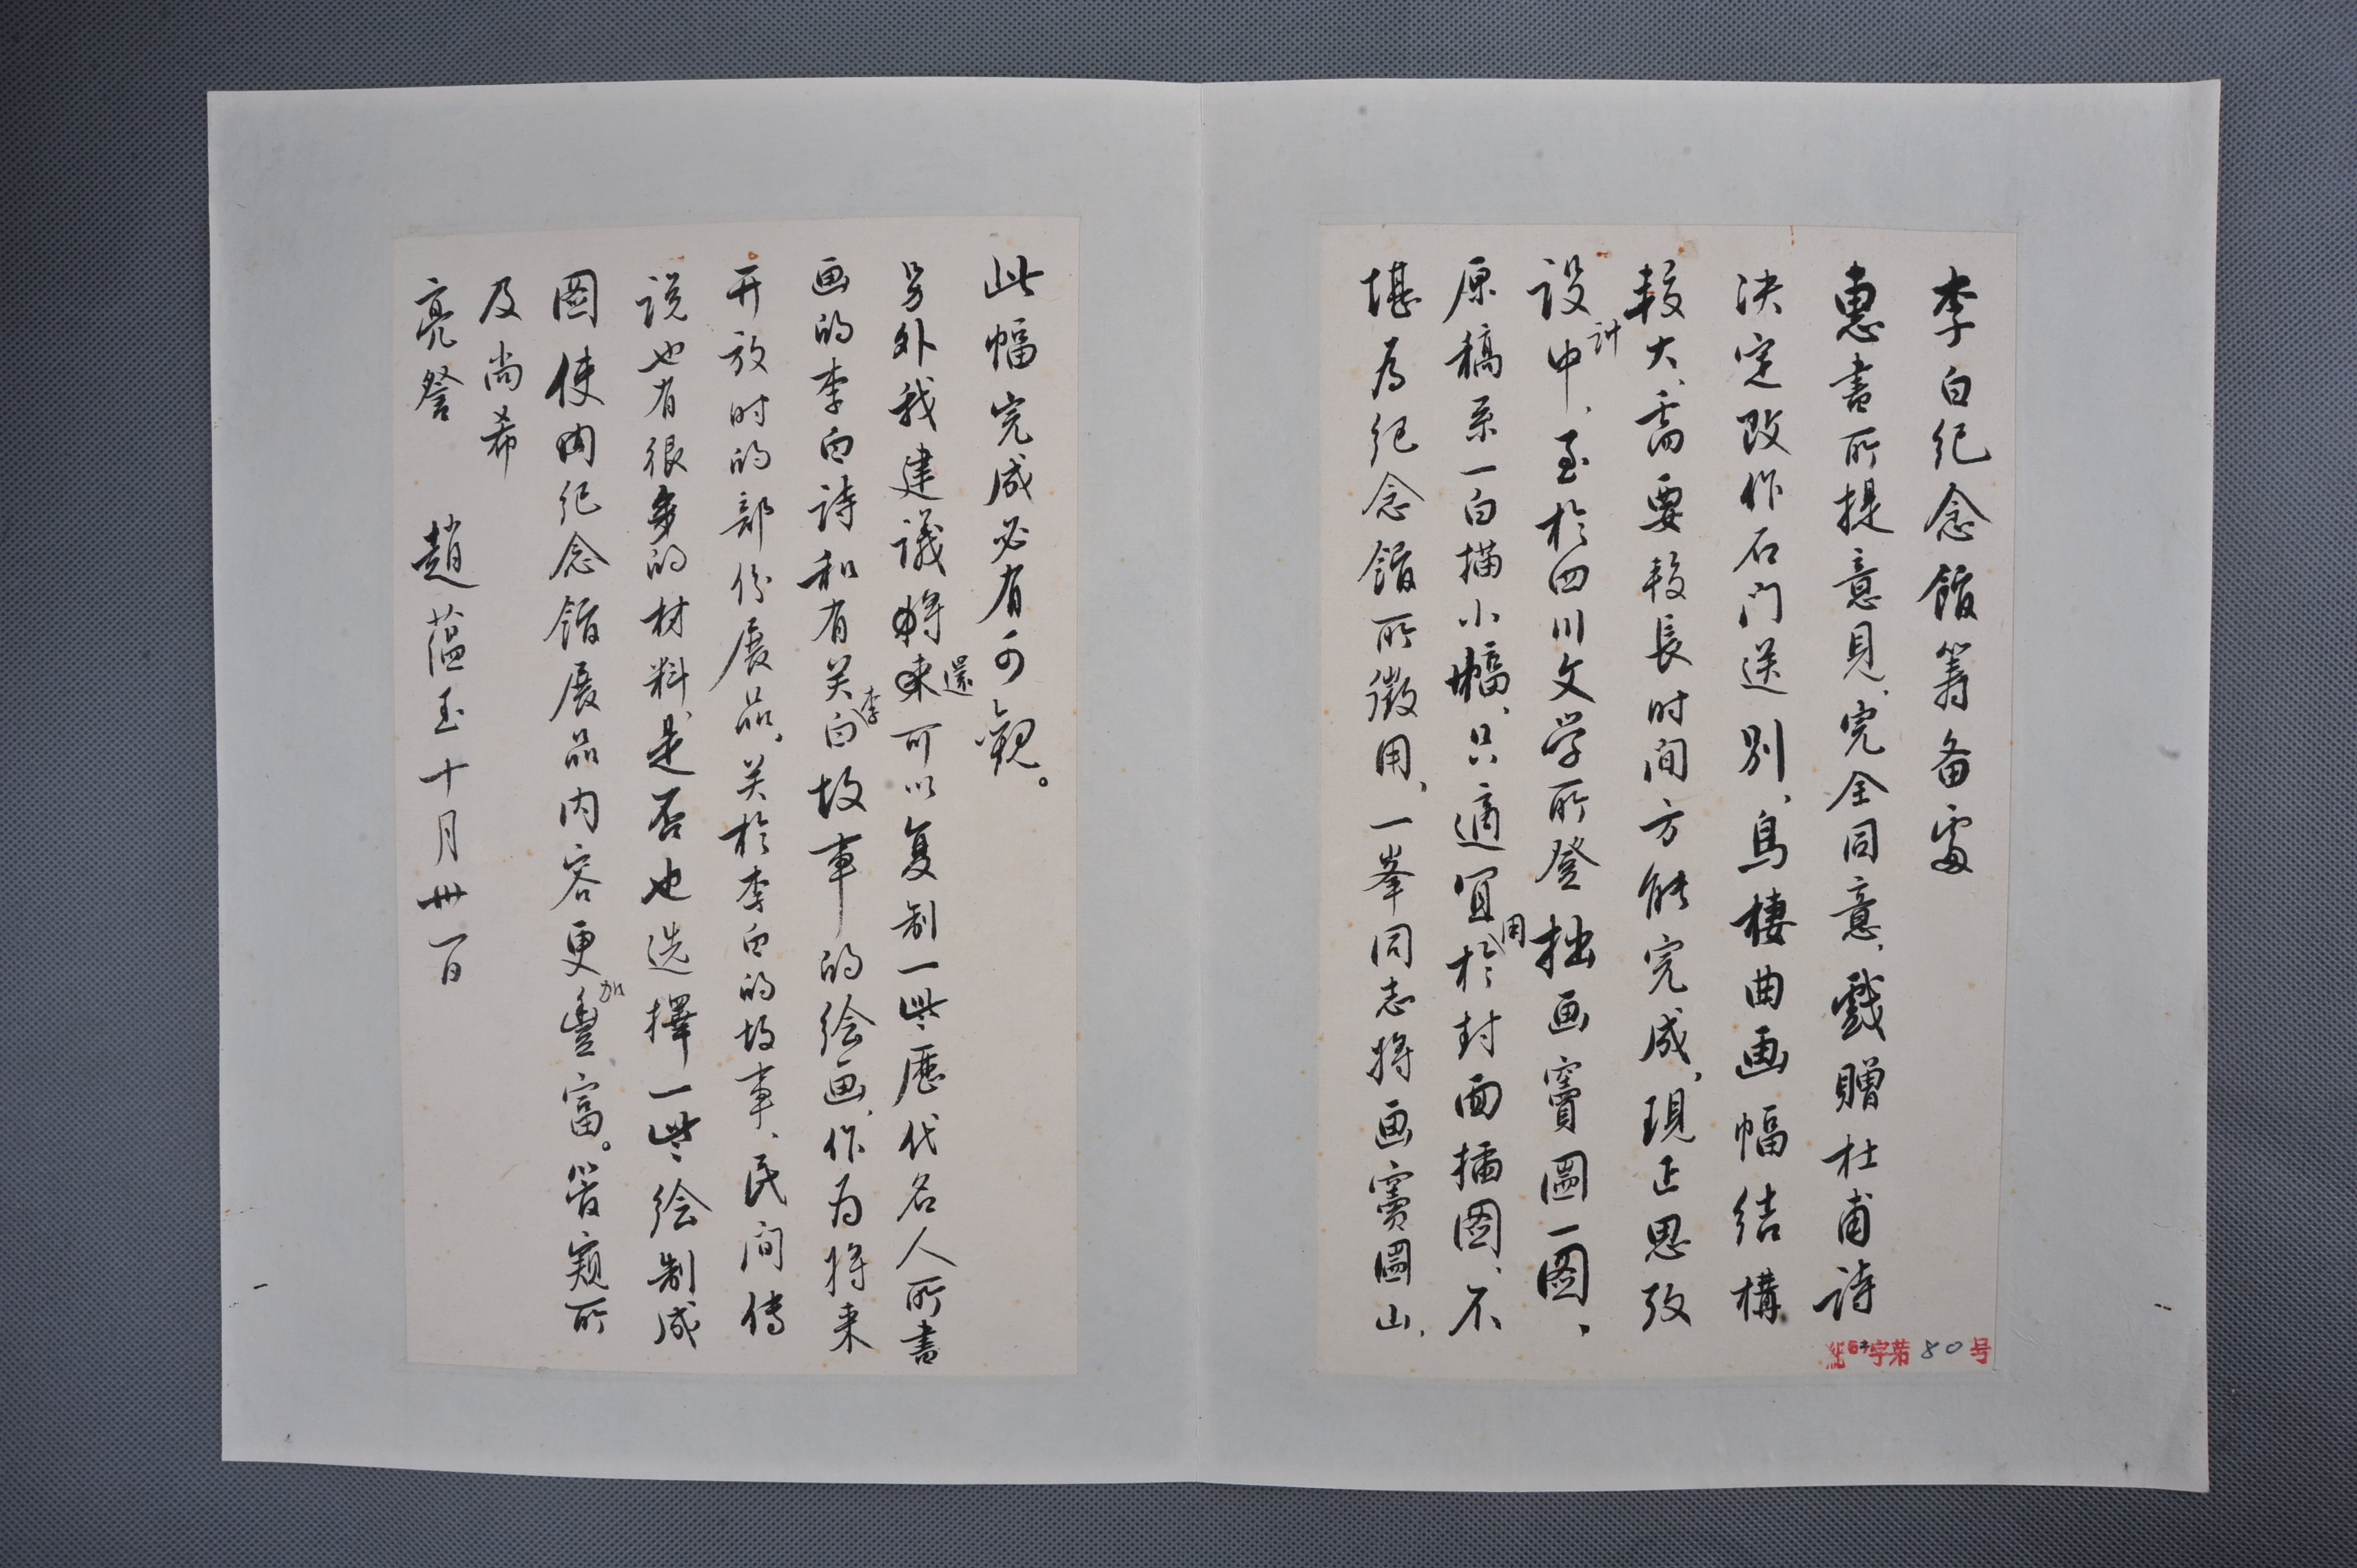 李白纪念馆筹备處
惠書所提意見、完全同意、戲贈杜甫诗
决定改作石门送别、烏棲曲画幅结構
较大、需要較長时间方能完成、現正思攷
设计中、至於四川文学所登拙画竇圌一图、
原稿系一白描小幅、只適宜用於封面插图、不
堪为纪念館所徵用、一峯同志将画竇圌山、
紀63字第80号
此幅完成必有可觀。
另外我建議還可以复制一些歷代名人所書
画的李白诗和有关李白故事的绘画、作为将来
开放时的部份展品、关於李白的故事、民间傳
说也有很多的材料、是否也选擇一些绘制成
图使纪念館展品内容更加豐富。管窺所
及尚希
亮詧 趙蕴玉十月卅一日